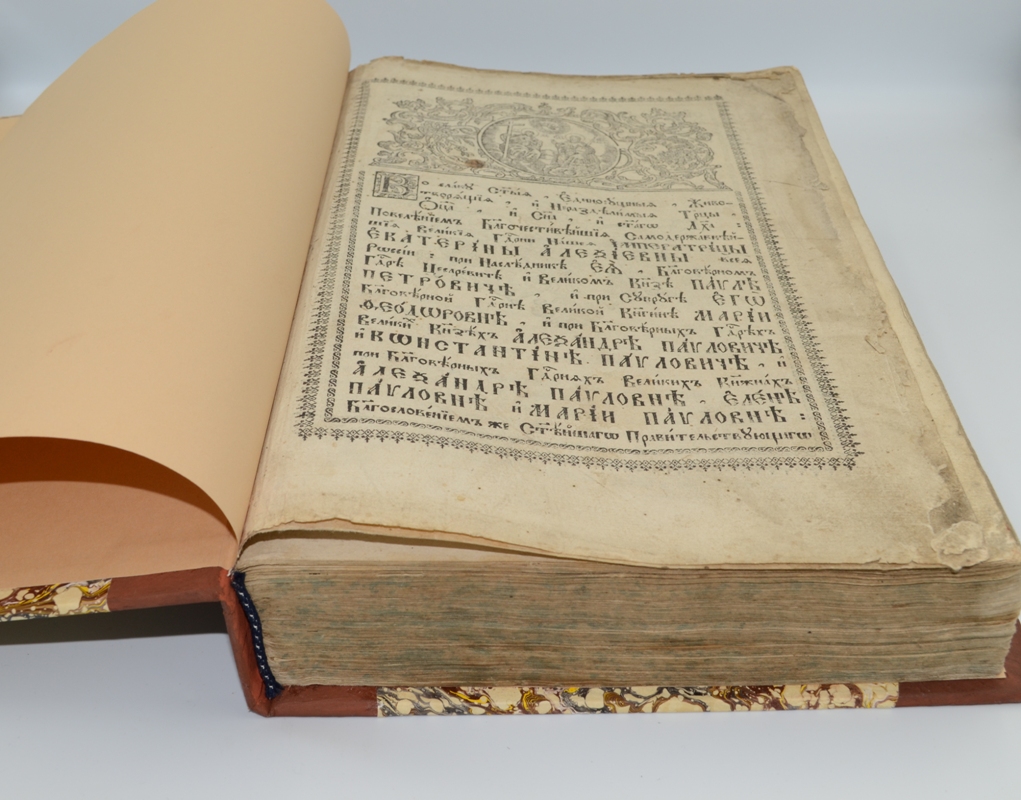 Во славу Ст҃ыѧ , Єдиносꙋщныѧ , Живо-
творѧщїѧ , и҆ Нераздѣлимыѧ Трⷪ҇цы ,
Ѻ҆ц҃а̀ , и҆ Сн҃а , и҆ ст҃агѡ Дх҃а :
Повелѣнїемъ Бл҃гочестивѣйшїѧ Самодержавнѣй-
шїѧ Великїѧ Гдⷭ҇рни Нашеѧ І҆мператрицы
Є҆КАТЕРІНЫ А҆ЛЕѮІЕВНЫ всеѧ
Рѡссїи : при Наслѣдникѣ Є҆Ѧ҆̀ , Бл҃говѣрномъ
Гдⷭ҇рѣ Цесаревичѣ и҆ Великомъ Кн҃зѣ ПАѴЛѢ
ПЕТРОВИЧѢ , и҆ при Сꙋпрꙋгѣ Є҆ГѠ̀
Бл҃говѣрной Гдⷭ҇рнѣ Великой Кн҃гинѣ МАРІИ
Ѳ҆ЕОДѠРОВНѢ , и҆ при Бл҃говѣрныхъ Гдⷭ҇рѣхъ
Великихъ Кн҃зѣхъ А҆ЛЕѮАНДРѢ ПАѴЛОВИЧѢ
и҆ КѠНСТАНТІНѢ ПАѴЛОВИЧѢ , и҆
при Бл҃говѣрныхъ Гдⷭ҇рнѧхъ Великихъ Кн҃жнахъ
А҆ЛЕѮАНДРѢ ПАѴЛОВНѢ , Є҆ЛЕНѢ
ПАѴЛОВНѢ и҆ МАРІИ ПАѴЛОВНѢ :
Бл҃гословенїемъ же Ст҃ѣйшагѡ Правительствꙋющагѡ